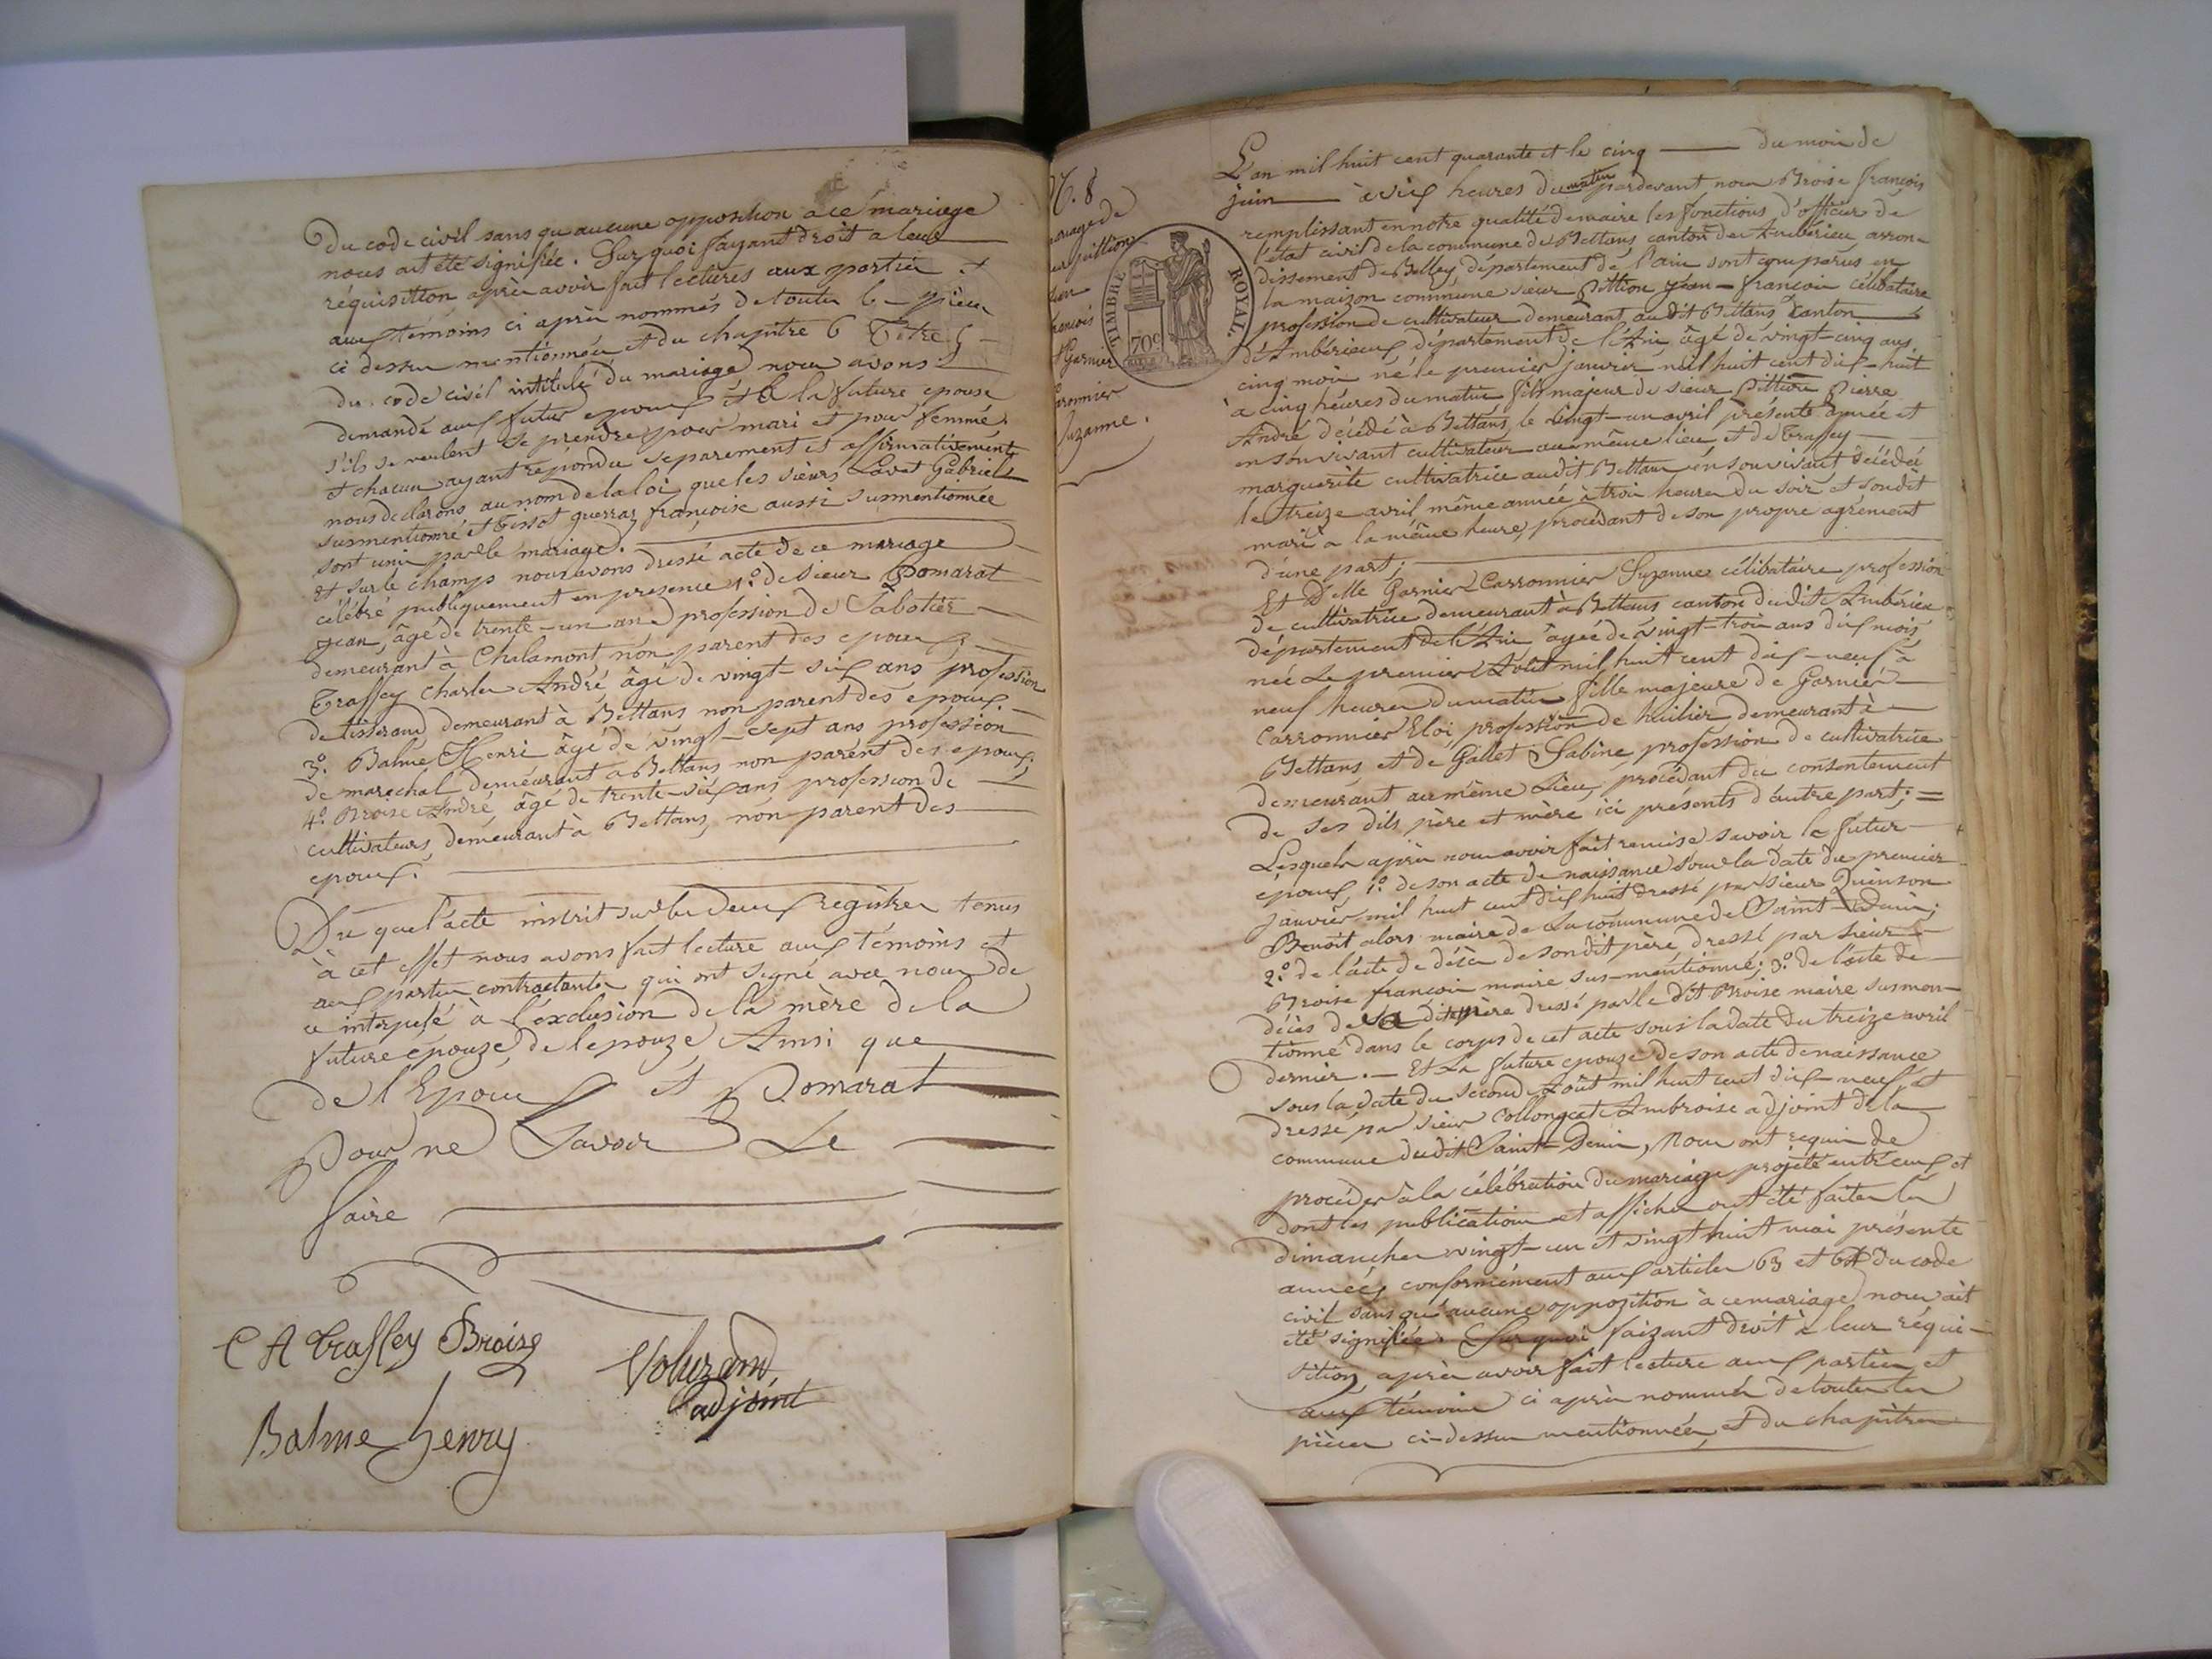 Du code civil sans qu'aucune opposition a ce mariage
nous ait été signifiée. Sur quoi fayant droit a leur
réquisition après avoir fait lectures aux parties et
aux témoins ci après nommés de toutes les pièces
ci dessus mentionnées et du chapitre 6 Titre 5
du code civil intitulé du mariage nous avons
demandé aux futur epoux et à la future epouse
s'ils se veulent se prendre pour mari et pour femme
et chacun ayant répondu séparement et affirmativement
nous déclarons au nom de la loi que les sieurs Lavet Gabriel
susmentionné et Tissot guerraz françoise aussi susmentionnée
sont unis par le mariage.
Et sur le champs nous avons dressé acte de ce mariage
célébré publiquement en presence 1.° de Sieur Pomarat
jean, âgé de trente-un an profession de Sabotier
demeurant à Chalamont non parent des epoux;
Traffey Charles André âgé de vingt-six ans profession
de tisserand demeurant à Bettans non parent des epoux.
3.° Balme Henri âgé de vingt-sept ans profession
de marechal demeurant a Bettans non parent des epoux;
4.° Broise André, âgé de trente-six ans profession de
cultivateurs, demeurant à Bettans, non parent des
epoux.
Du quel acte inscrit sur les deux registres tenus
à cet effet nous avons fait lecture aux témoins et
aux parties contractantes qui ont signé avec nous de
ce interpelé à l'exclusion de la mère de la
future épouze, de l'epouze Ainsi que
de l'Epoux et Pomarat
Pour ne Savoir Le
faire
C A Traffey Broise
Voluzand
adjoint
Balme henry
N. 8
ariage de
pittion
Jean
françois
et Garnier
Carronnier
Suzanne.
TIMBRE ROYAL.
70c
L'an mil huit cent quarante et le cinq du mois de
juin à dix heures du matin pardevant nous Broise françois
remplissant en notre qualité de maire les fonctions d'officier de
l'état civil de la commune de Bettans canton de Ambérieu arron-
dissement de Belley, département de l'ain sont comparus en
la maizon commune sieur Pittion jean-françois célibataire
profession de cultivateur demeurant audit Bettans Canton
d'Ambérieux département de l'Ain âgé de vingt-cinq ans
cinq mois né le premier janvier mil huit cent dix-huit
à cinq heures du matin fils majeur de sieur Pittion Pierre
André décédé à Bettans le vingt-un avril présente année et
en son vivant cultivateur au même lieu et de Traffey
marguerite cultivatrice audit Bettans en son vivant décédée
le treize avril même année à trois heures du soir et sondit
mari à la même heure, procédant de son propre agrément
d'une part;
Et Delle Garnier Carronnier Suzanne célibataire profession
de cultivatrice demeurant à Bettans canton dudit Ambérieu
département de l'Ain âgée de vingt-trois ans dix mois
née le premier Août mil huit cent dix-neuf à
neuf heures du matin fille majeure de Garnier
Carronnier Eloi, profession de huilier demeurant à
Bettans et de Gallet Sabine, profession de cultivatrice
demeurant au même Lieu, procédant du consentement
de ses dits père et mère ici présents d'autre part;
Lesquels après nous avoir fait remise savoir le futur
epoux, 1.° de son acte de naissance sous la date du premier
janvier mil huit cent dix huit dressé par sieur Quinson
Benoit alors maire de la commune de Saint-Denis;
2.° de l'acte de décès de sondit père dressé par sieur
Broise françois maire sus-mentionné; 3.° de l'acte de
décès de sa dite mère dressé par le dit Broise maire susmen-
tionné dans le corps de cet acte sous la date du treize avril
dernier. Et la future epouze de son acte de naissance
sous la date du second Août mil huit cent dix-neuf et
dressé par sieur Collongeat Ambroise adjoint de la
commune dudit Saint-Denis, Nous ont requis de
procéder à la célébration du mariage projeté entr'eux et
dont les publications et affiches ont été faites les
dimanches vingt-un et vingt huit mai présente
année, conformément aux articles 63 et 64 du code
civil sans qu'aucune oppozition à ce mariage nous ait
été signifiée. Sur quoi faizant droit à leur réqui-
sition, après avoir fait lecture aux parties et
aux témoins ci après nommés de toutes les
pièces ci-dessus mentionnées et du chapitre